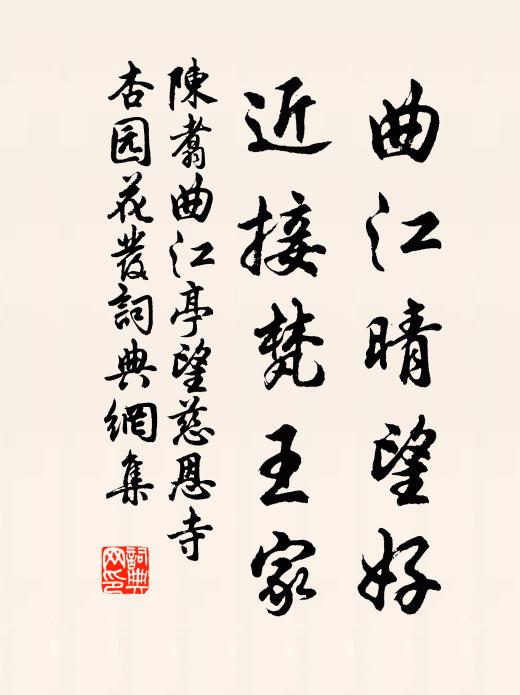 曲江晴望好
近接梵王家
陳翥曲江亭望慈恩寺
杏园花發詞典網集
詞典网印